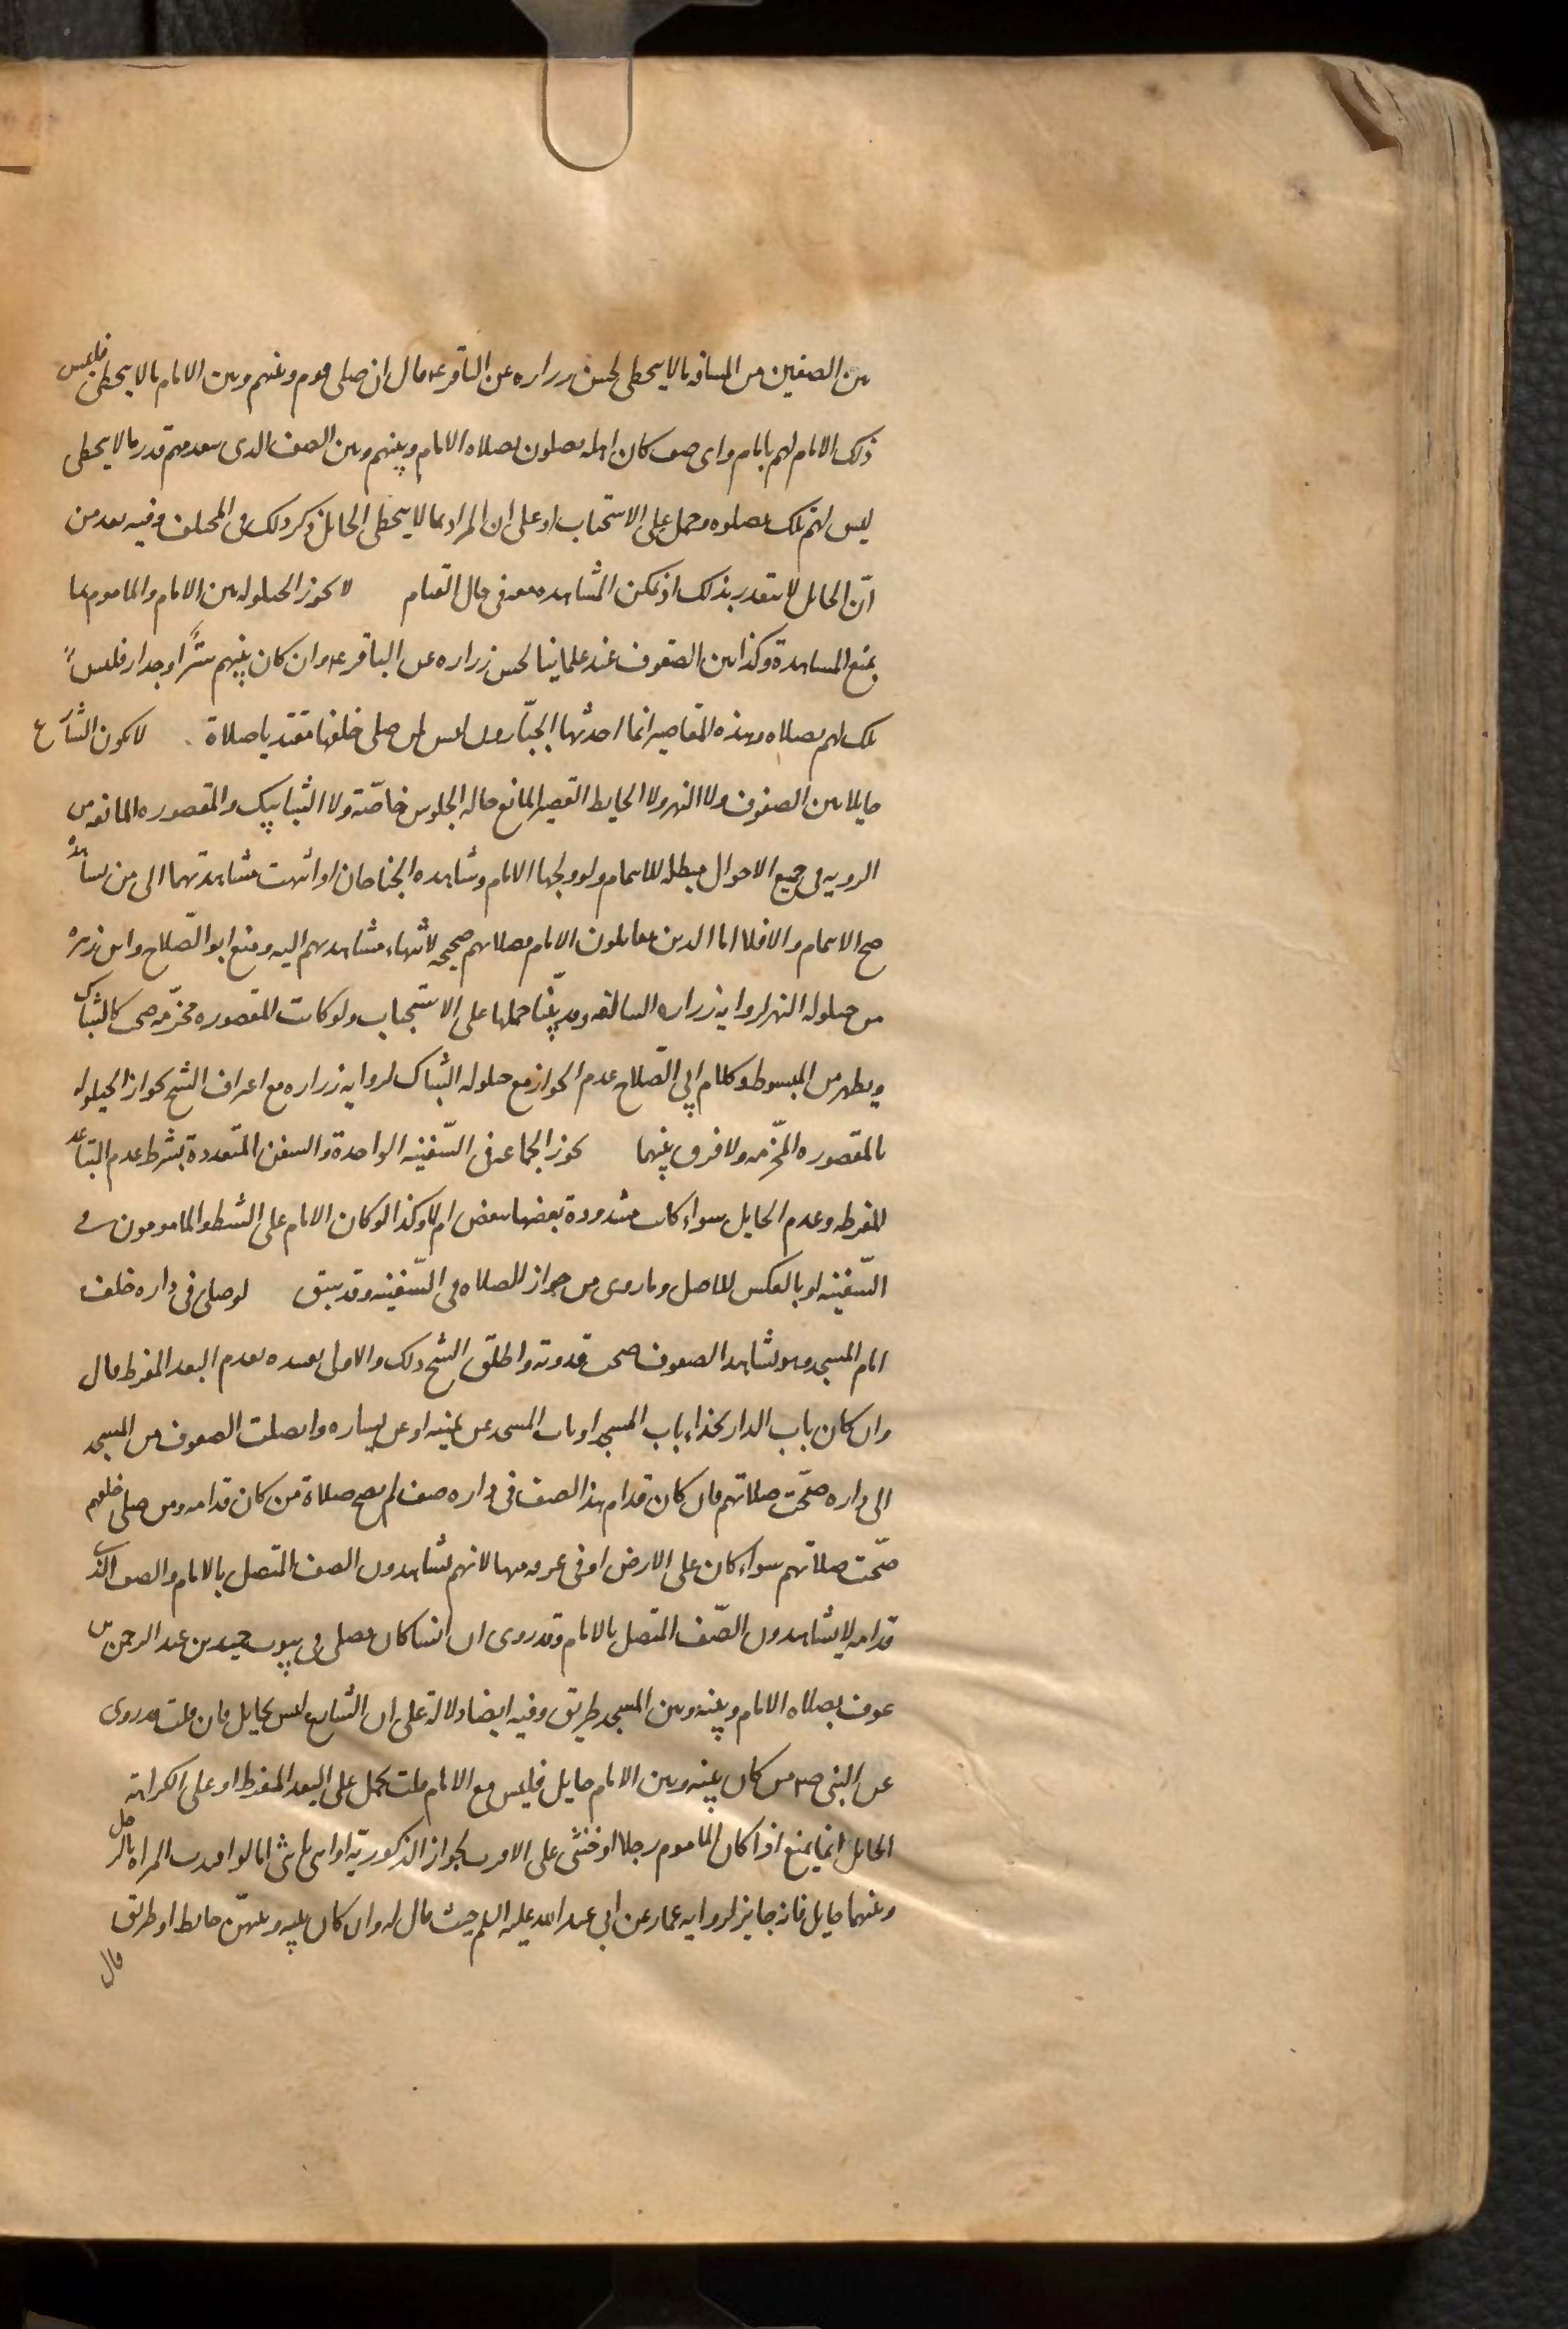 بين الصفين من المسافة ما لا يتخطى لحسن زرارة عن الباقر ع قال ان صلى قوم وبينهم وبين الامام ما لا يتخطى فليس
ذلك الامام لهم بامام واى صف كان اهله يصلون بصلاة الامام وبينهم وبين الصف الذى يتقدمهم قدر ما لا يتخطى
ليس لهم تلك بصلوة وحمل على الاستحباب او على ان المراد بما لا يتخطى الحايل ذكر ذلك فى المختلف وفيه بعد من
انّ الحايل لا يتقدر بذلك اذ يمكن المشاهدة معه فى حال القيام لا يجوز الحيلولة بين الامام والماموم بما
يمنع المشاهدة وكذا بين الصفوف عند علمائنا لحسن زرارة عن الباقر ع وان كان بينهم سترًا او جدار فليس
تلك لهم بصلاة وهذه المقاصير انما احدثها الجبّارون ليس لمن صلى خلفها مقتديا صلاة لا يكون الشارع
حايلا بين الصفوف ولا النهر ولا الحايط القصير المانع حالة الجلوس خاصّة ولا الشبابيك والمقصورة المانعة من
الروية فى جميع الاحوال مبطلة للايتمام ولو ولجها الامام وشاهده الجناحان او انتهت مشاهدتهما الى من يشاهده
صح الايتمام والا فلا اما الذين يقابلون الامام فصلاتهم صحيحة لانتهاء مشاهدتهم اليه ومنع ابو الصّلاح وابن زهره
من حيلولة النهر لرواية زرارة السالفة وقد بيّنا حملها على الاستحباب ولو كانت المقصورة مخرّمة صح كالشباك
ويظهر من المبسوط وكلام ابى الصّلاح عدم الجواز مع حيلولة الشباك لرواية زرارة مع اعتراف الشيخ بجواز الحيلولة
بالمقصورة المخرّمة ولا فرق بينهما يجوز الجماعة فى السّفينة الواحدة والسفن المتعددة بشرط عدم التباعد
المفرط وعدم الحايل سواء كانت مشدودة بعضها ببعض ام لا وكذا لو كان الامام على الشط والمامومون فى
السّفينة او بالعكس للاصل وما روى من جواز الصلاة فى السّفينة وقد سبق لو صلى فى داره خلف
امام المسجد وهو يشاهد الصفوف صحت قدوته واطلق الشيخ ذلك والاولى تقييده بعدم البعد المفرط قال
وان كان باب الدار بحذاء باب المسجد او باب المسجد عن يمينه او عن يساره واتصلت الصفوف من المسجد
الى داره صحّت صلاتهم فان كان قدام هذا الصف فى داره صف لم يصح صلاة من كان قدامه ومن صلى خلفهم
صحّت صلاتهم سواء كان على الارض او فى غرفة منها لانهم يشاهدون الصف المتصل بالامام والصف الذى
قدامه لا يشاهدون الصّف المتصل بالامام وقد روى ان انسا كان يصلى فى بيوت حميد بن عبد الرحمن بن
عوف بصلاة الامام وبينه وبين المسجد طريق وفيه ايضا دلالة على ان الشارع ليس بحايل فان قلت قد روى
عن النبى ص من كان بينه وبين الامام حايل فليس مع الامام قلت يحمل على البعد المفرط او على الكراهة
الحايل انما يمنع اذا كان الماموم رجلا او خنثى على الاقرب لجواز الذكوريّة او انثى بانثى اما لو اقتدت المراة بالرجل
وبينهما حايل فانه جايز لرواية عمار عن ابى عبد الله عليه السلم حيث قال له وان كان بينه وبينهنّ حايط او طريق
قال